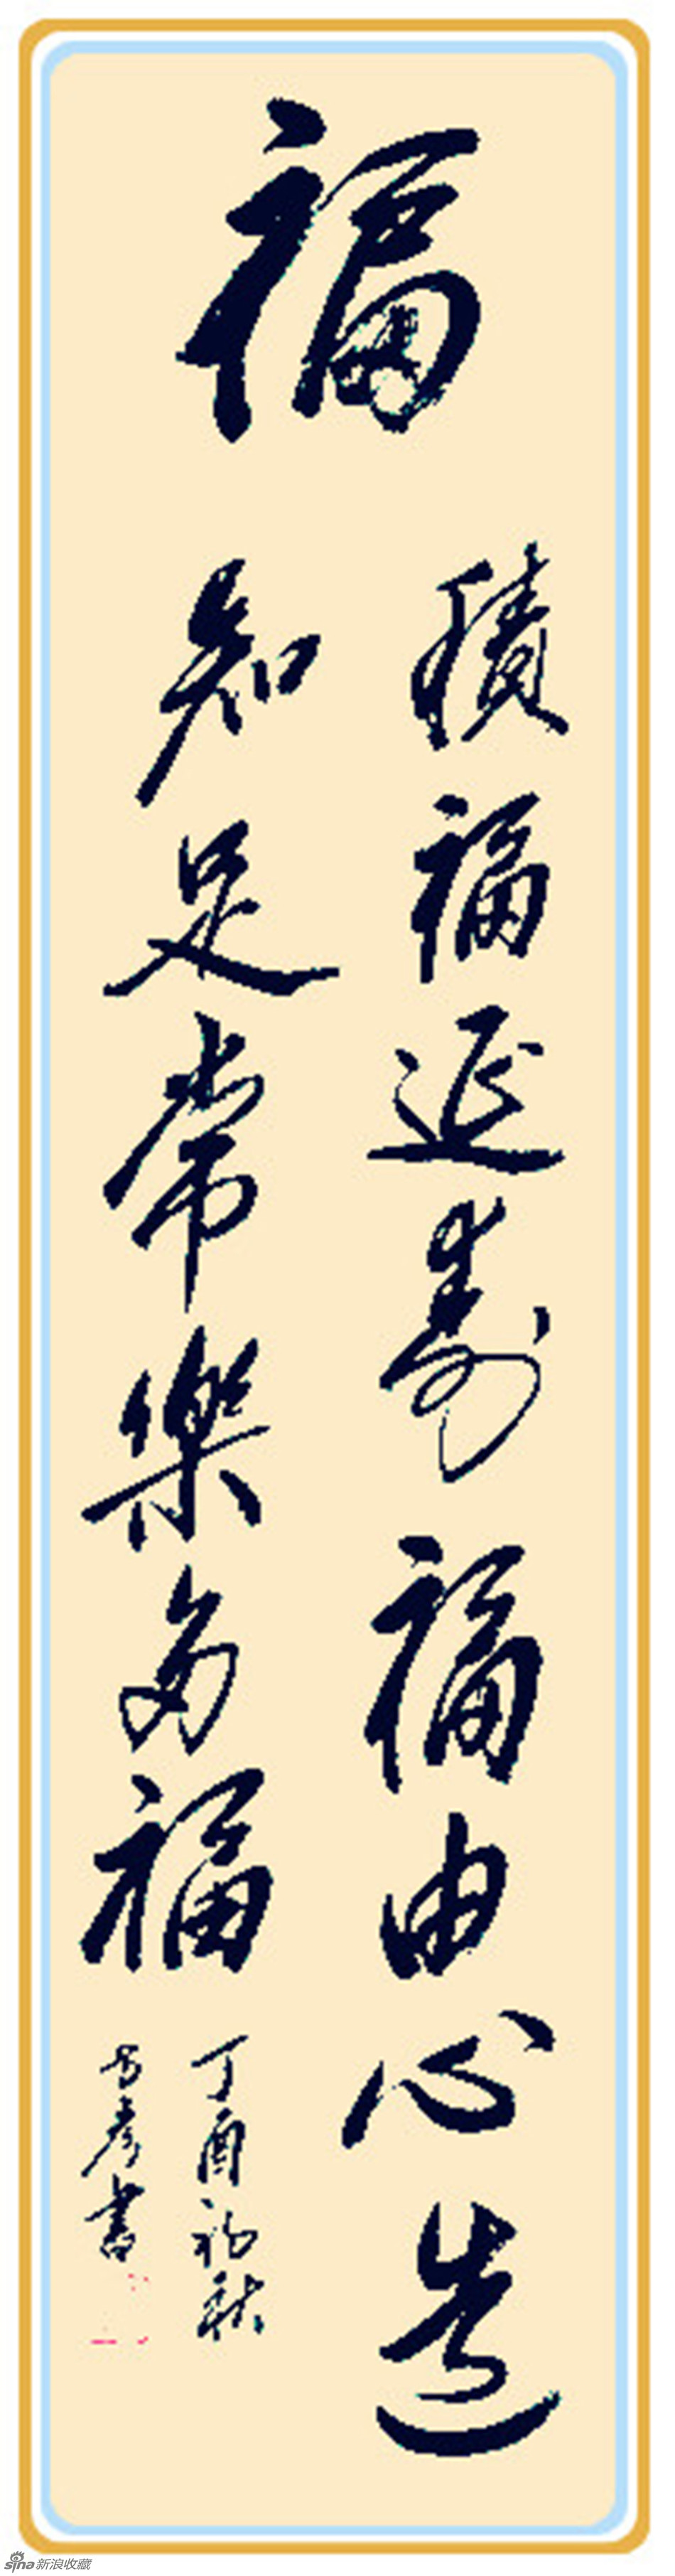 福
積福延壽福由心造
知足常樂多福
丁酉初秋
书
sina新浪收藏